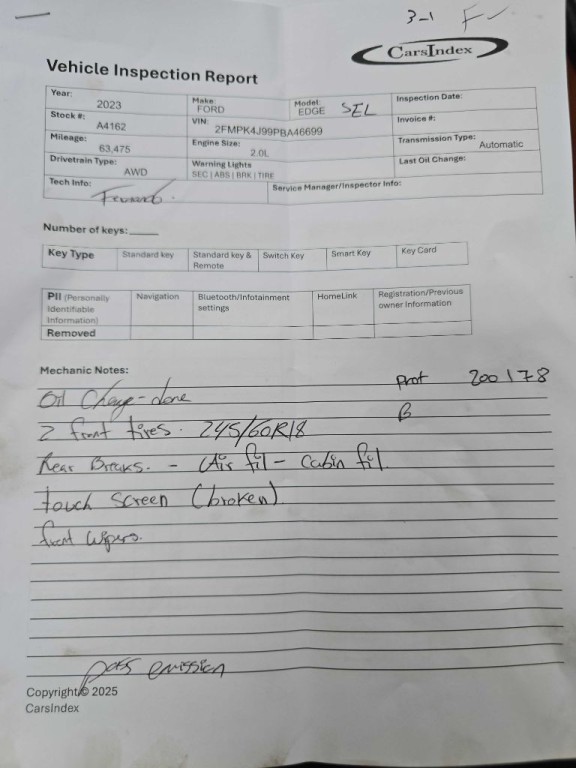 3-1 F
CarsIndex
Vehicle Inspection Report
Year: 2023 Make: FORD Model: EDGE SEL Inspection Date:
Stock #: A4162 VIN: 2FMPK4J99PBA46699 Invoice #:
Mileage: 63,475 Engine Size: 2.0L Transmission Type: Automatic
Drivetrain Type: AWD Warning Lights SEC | ABS | BRK | TIRE Last Oil Change:
Tech Info: Service Manager/Inspector Info:
Number of keys:
Key Type Standard key Standard key & Remote Switch Key Smart Key Key Card
PII (Personally Identifiable Information) Navigation Bluetooth/Infotainment settings HomeLink Registration/Previous owner Information
Removed
Mechanic Notes:
Oil Chenge-done 200178
2 front tires. 245/60R18 B
Rear Breaks. - (Air fil - Cabin fil.
touch screen (broken)
front wipers.
pass emission
Copyright© 2025
CarsIndex